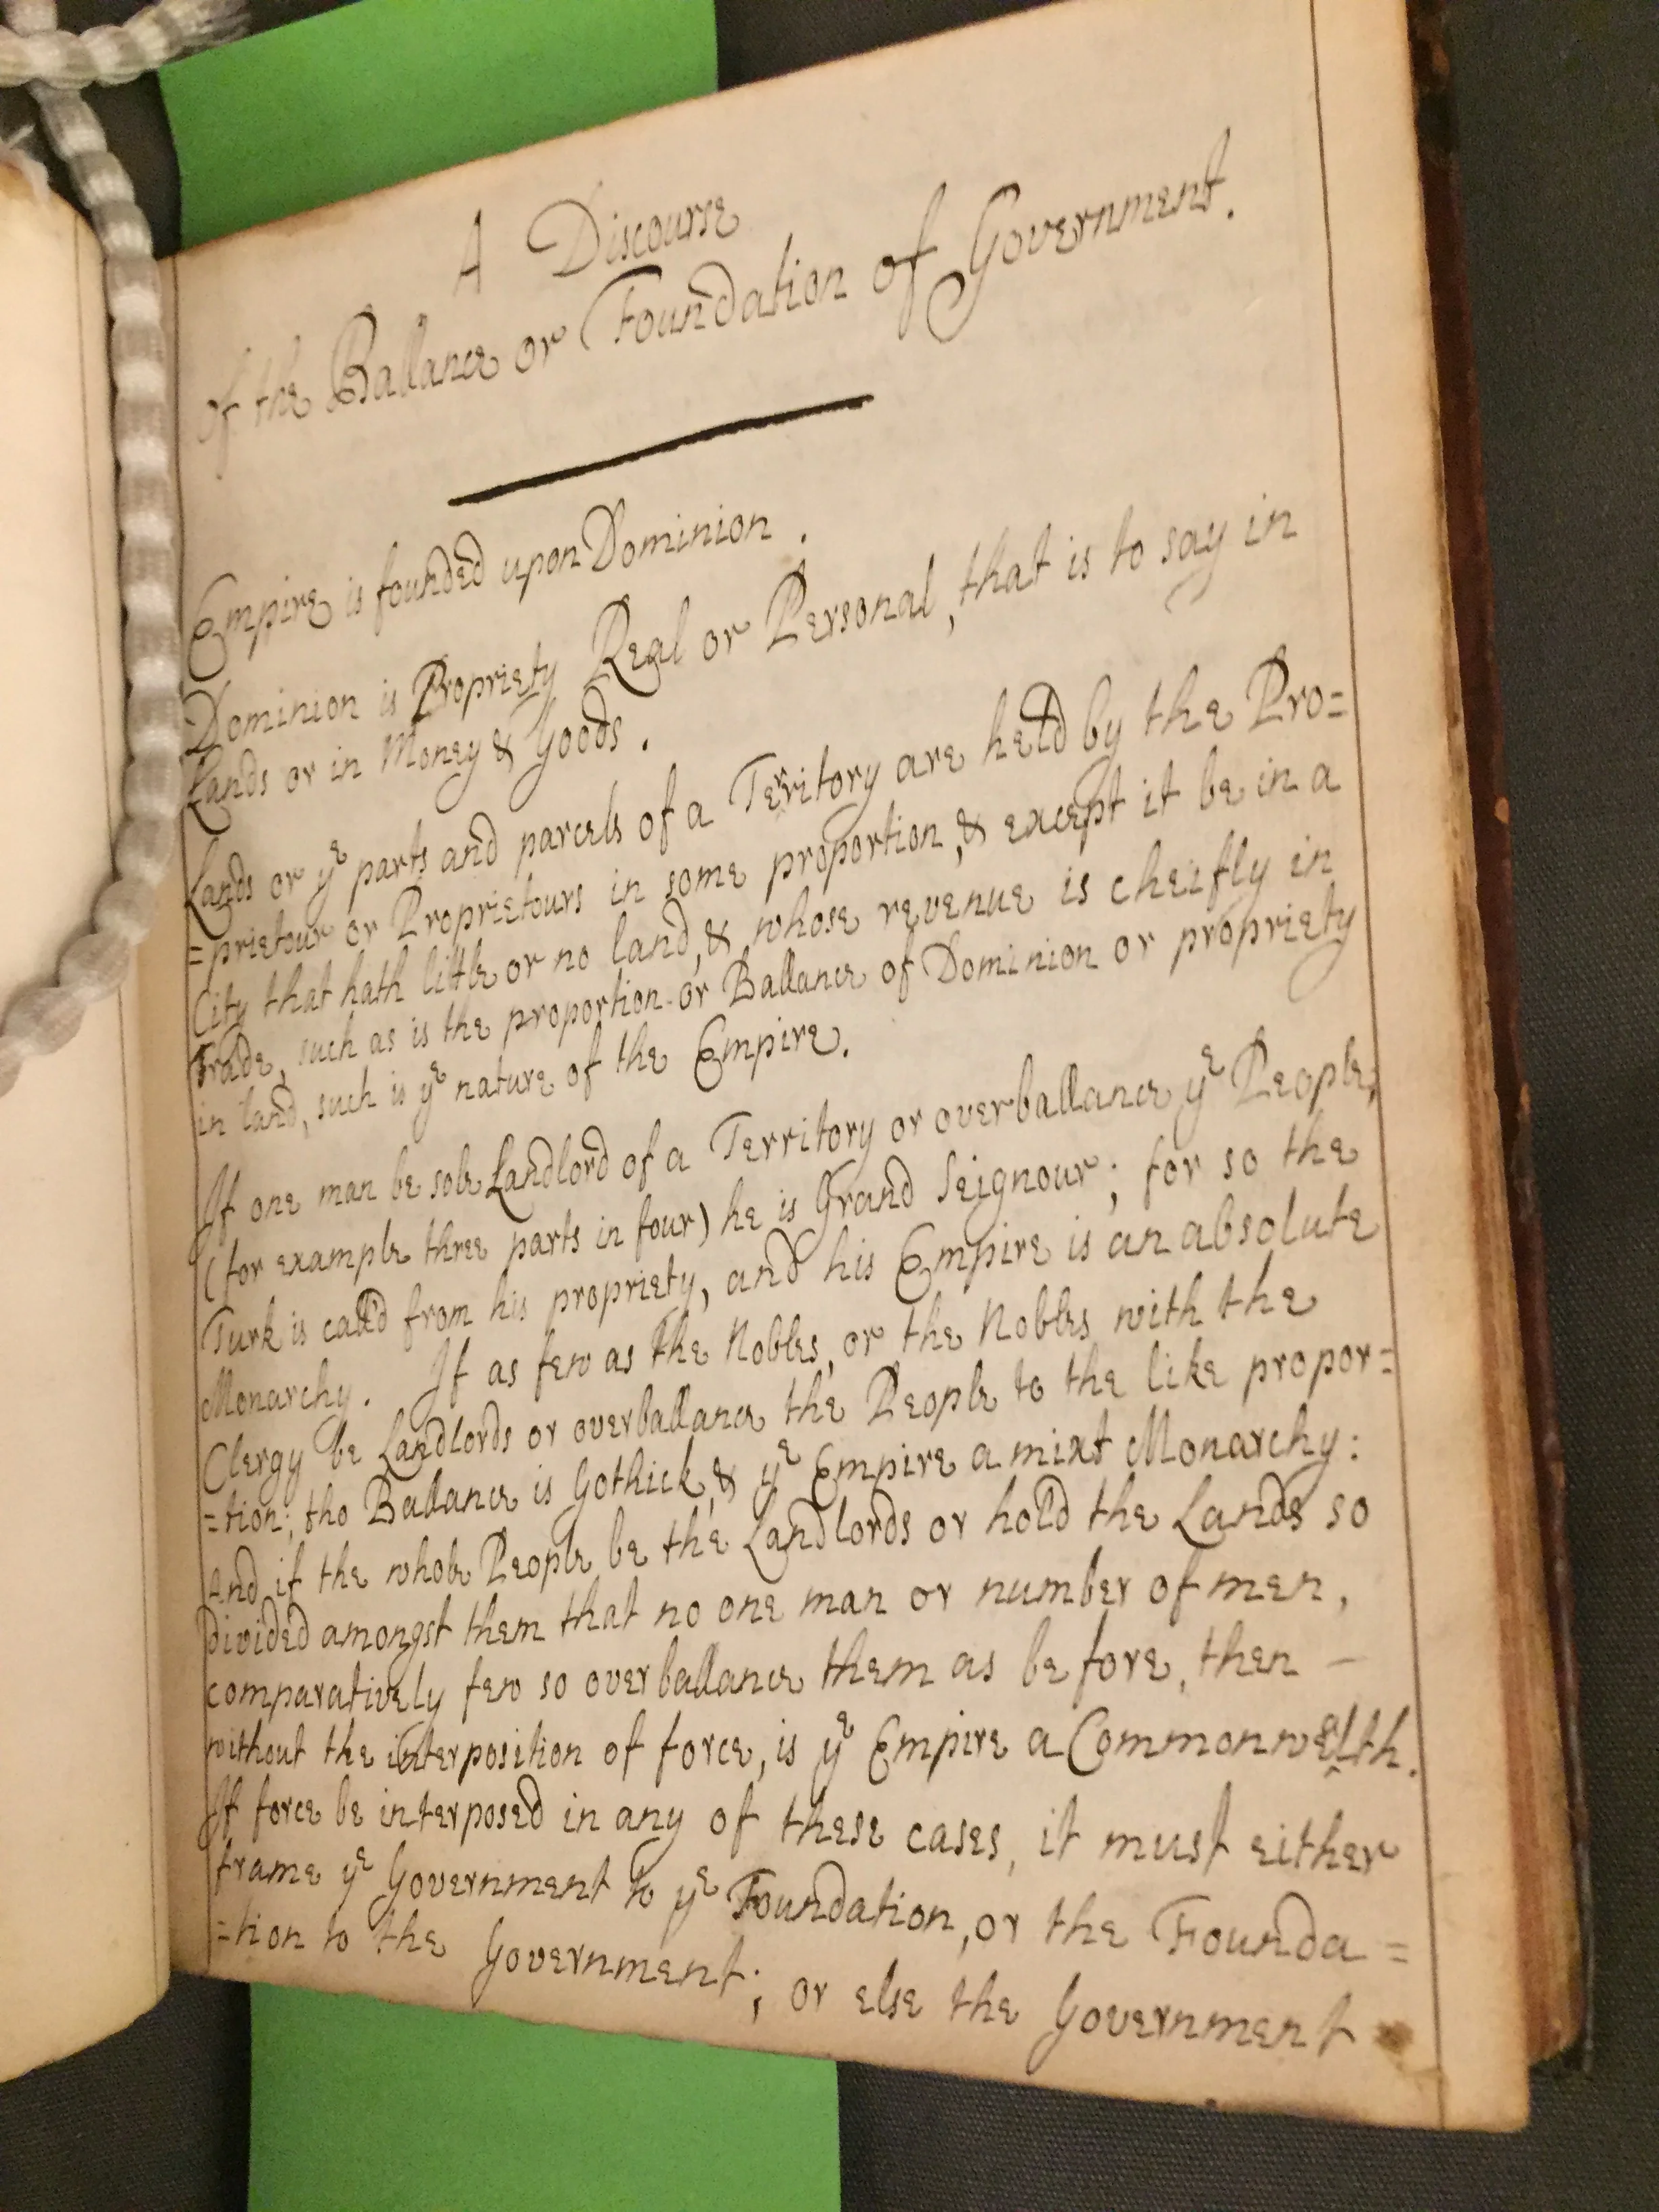 A Discourse
of the Ballance or Foundation of Government.
Empire is founded upon Dominion.
Dominion is Propriety Real or Personal, that is to say in
Lands or in Money & Goods.
Lands or yᵉ parts and parcels of a Territory are held by the Pro=
=prietour or Proprietours in some proportion, & except it be in a
City that hath little or no land, & whose revenue is cheifly in
Trade, such as is the proportion or Ballance of Dominion or propriety
in land, such is yᵉ nature of the Empire.
If one man be sole Landlord of a Territory or overballance yᵉ People,
(for example three parts in four) he is Grand Seignour; for so the
Turk is call'd from his propriety, and his Empire is an absolute
Monarchy. If as few as the Nobles, or the Nobles with the
Clergy be Landlords or overballance the People to the like propor=
=tion; the Ballance is Gothick, & yᵉ Empire a mixt Monarchy:
And if the whole People be the Landlords or hold the Lands so
divided amongst them that no one man or number of men,
comparatively few so overballance them as before, then –
without the interposition of force, is yᵉ Empire a Commonwealth.
If force be interposed in any of these cases, it must either
frame yᵉ Government to yᵉ Foundation, or the Founda=
=tion to the Government; or else the Government